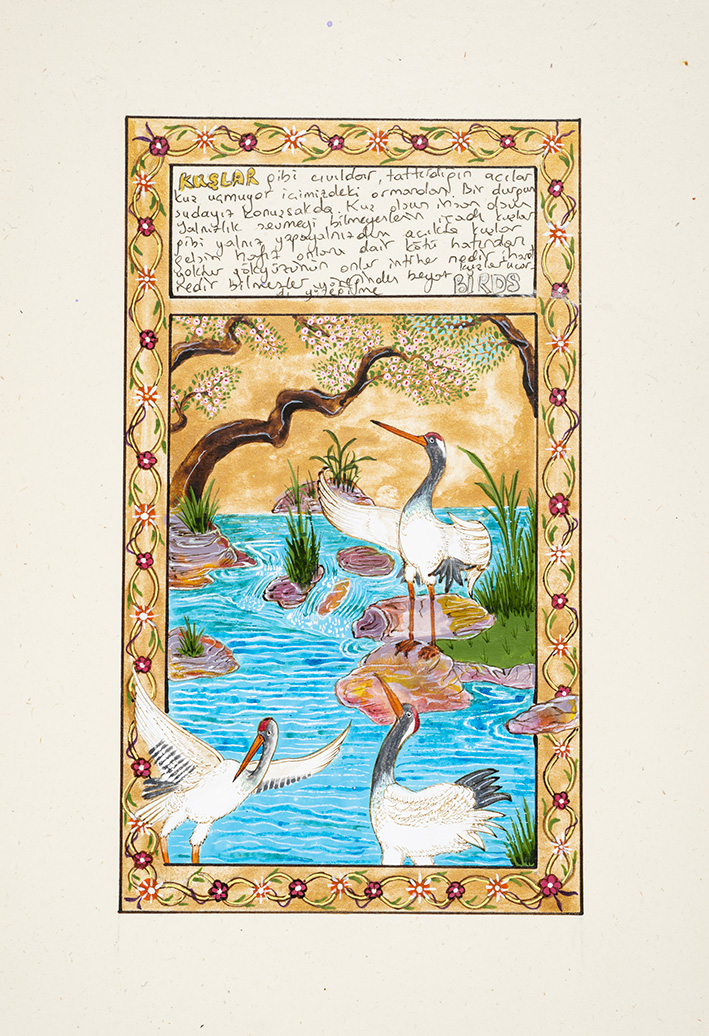 KUŞLAR gibi cıvıldar, tattırdığın acılar
kuş uçmuyor içimizdeki ormandan. Bir durgun
sudayız konuşsakda. Kuş olsun insan olsun
yalnızlık sevmeyi bilmeyenlerin icadı kuşlar
gibi yalnız yapayalnızdın açıkta kuşlar
gelsin hafız onlara dair kötü hatıradan
yoktur gökyüzünün onlar intihar nedir ihanet
nedir bilmezler beyaz kuşlar uçar
BIRDS